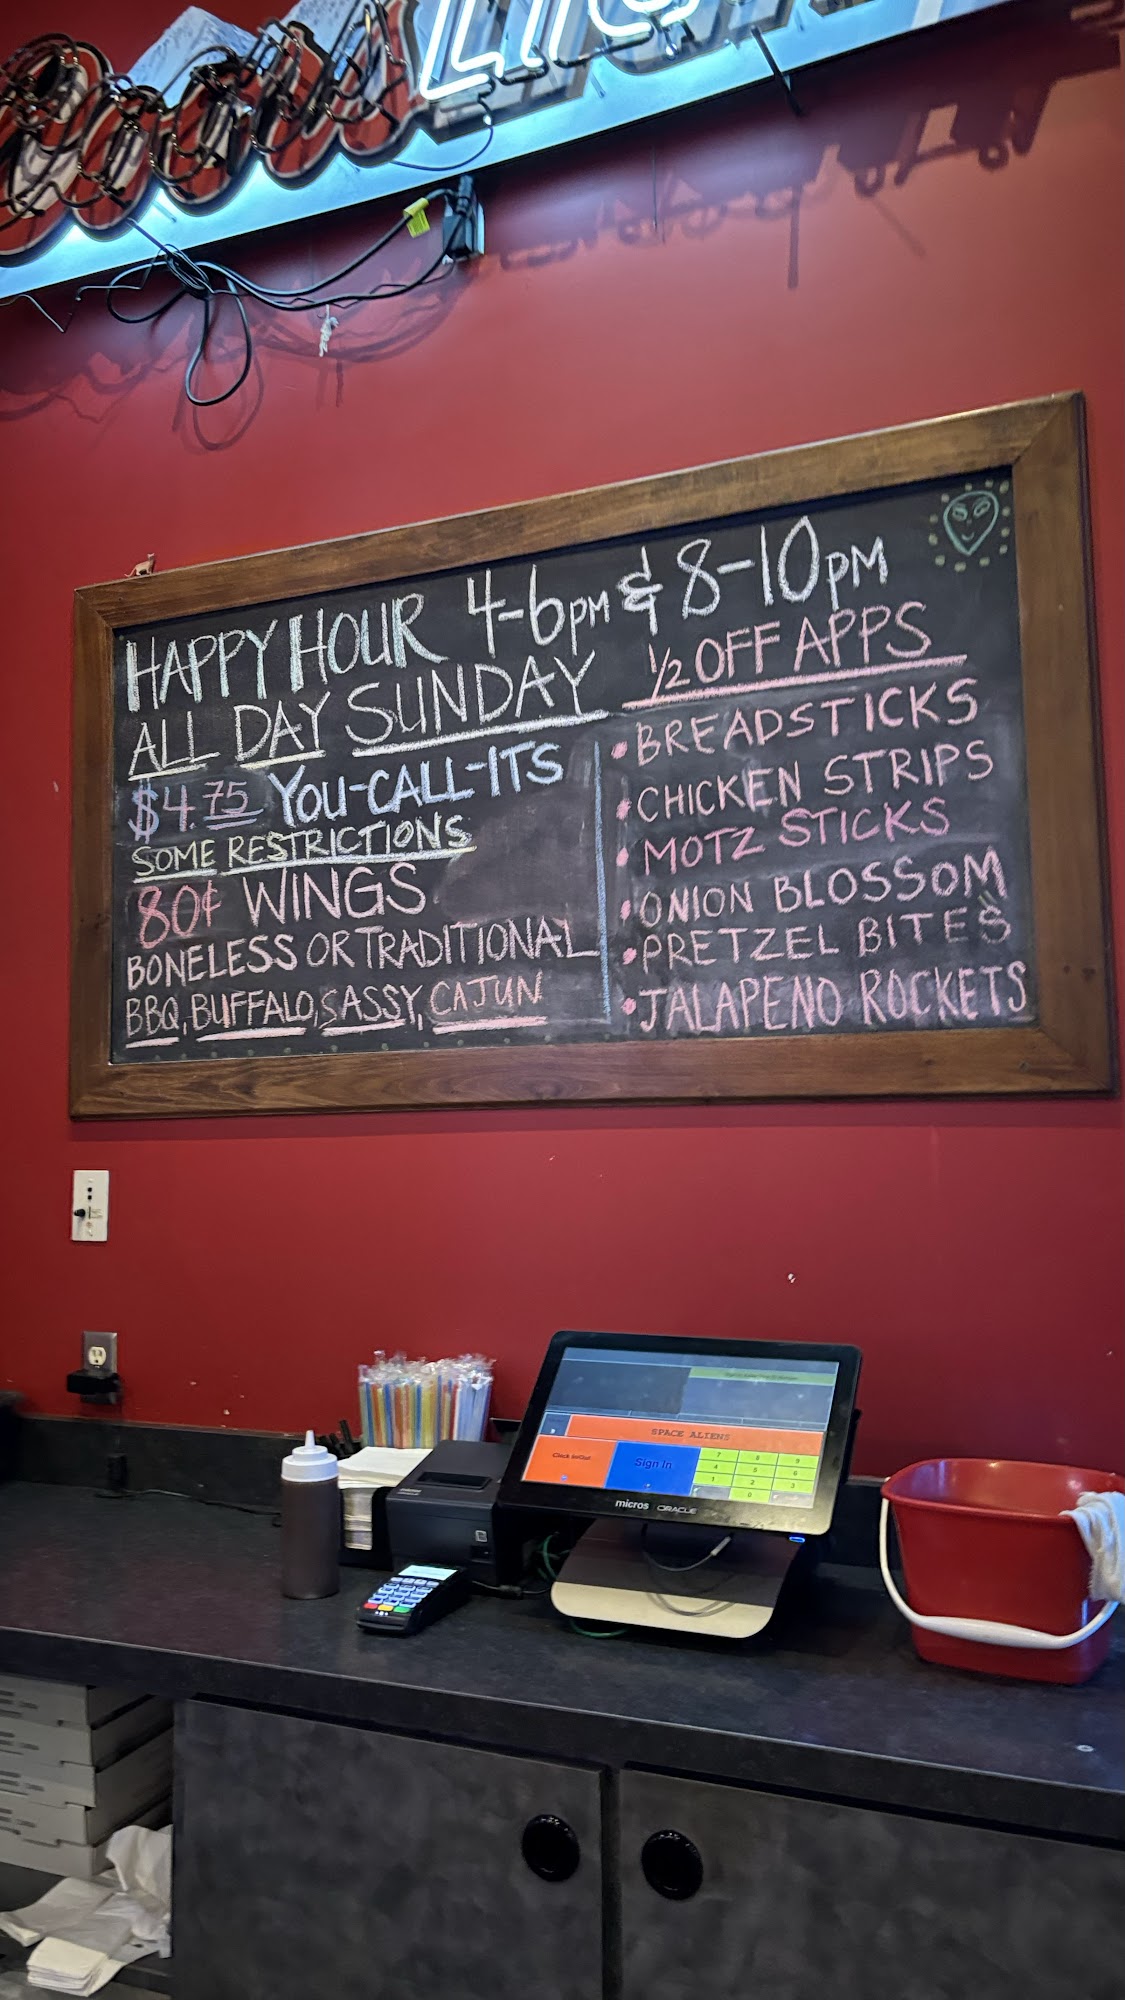 Coors LIGHT
HAPPY HOUR 4-6PM & 8-10PM
ALL DAY SUNDAY
$4.75 YOU-CALL-ITS
SOME RESTRICTIONS
80¢ WINGS
BONELESS OR TRADITIONAL
BBQ, BUFFALO, SASSY, CAJUN
1/2 OFF APPS
• BREADSTICKS
• CHICKEN STRIPS
• MOTZ STICKS
• ONION BLOSSOM
• PRETZEL BITES
• JALAPENO ROCKETS
SPACE ALIENS
Clock In/Out
Sign In
7 8 9
4 5 6
1 2 3
0
micros ORACLE